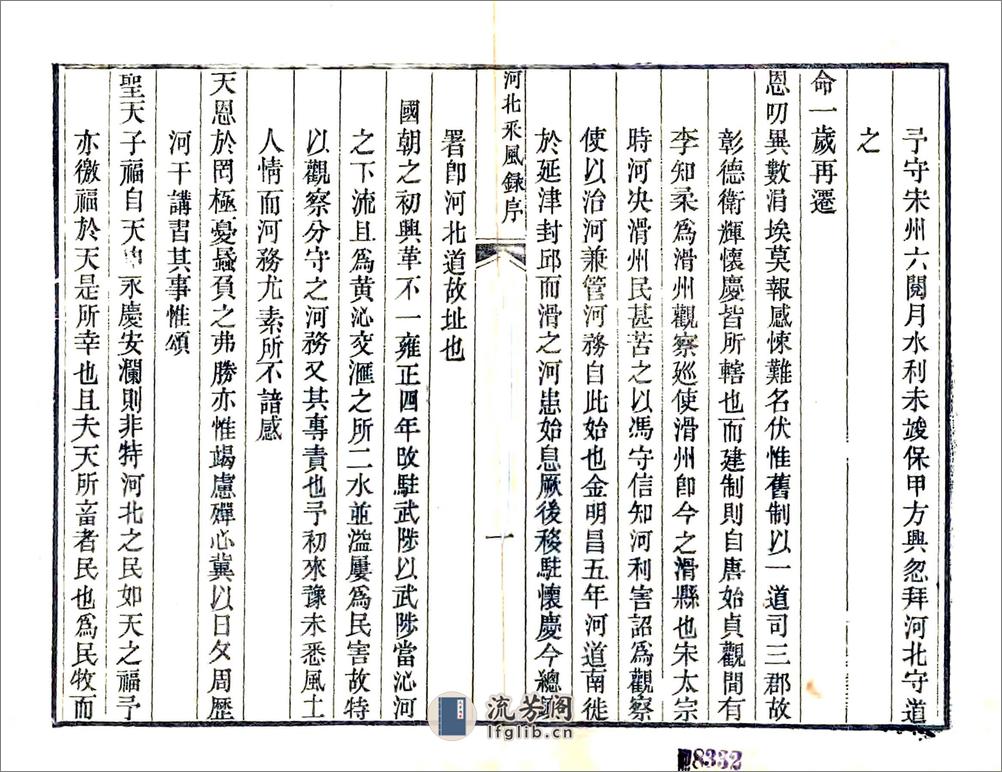 予守宋州六閱月水利未竣保甲方興忽拜河北守道
之
命一歲再遷
恩叨異數涓埃莫報感悚難名伏惟舊制以一道司三郡故
彰德衛輝懷慶皆所轄也而建制則自唐始貞觀間有
李知柔爲滑州觀察巡使滑州卽今之滑縣也宋太宗
時河決滑州民甚苦之以馮守信知河利害詔爲觀察
使以治河兼管河務自此始也金明昌五年河道南徙
於延津封邱而滑之河患始息厥後移駐懷慶今總鎮
河北采風錄序
一
署卽河北道故址也
國朝之初興革不一雍正四年改駐武陟以武陟當沁河
之下流且爲黃沁交滙之所二水並溢屢爲民害故特
以觀察分守之河務又其專責也予初來豫未悉風土
人情而河務尤素所不諳感
天恩於罔極憂蟁負之弗勝亦惟竭慮殫心冀以日夕周歷
河干講習其事惟頌
聖天子福自天申永慶安瀾則非特河北之民如天之福予
亦徼福於天是所幸也且夫天所畜者民也爲民牧而
流芳閣
lfglib.cn
8332